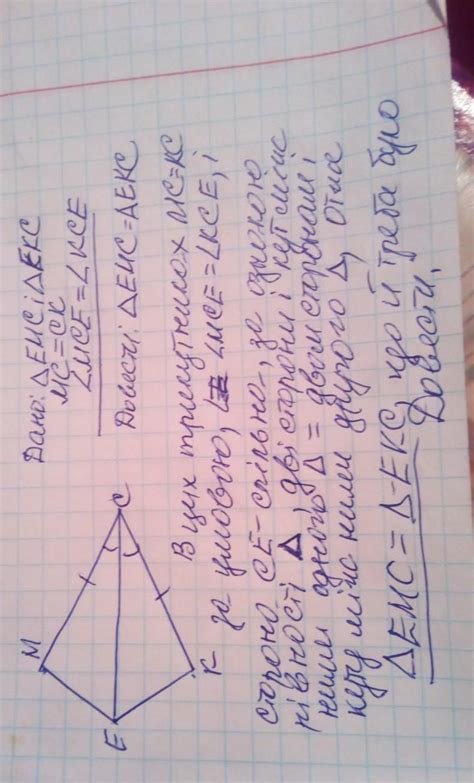 Дано: ΔEMC і ΔEKC
MC=CK
∠MCE=∠KCE
Довести: ΔEMC=ΔEKC
M
C
E
K
В цих трикутниках MC=KC
за умовою, ∠MCE=∠KCE, і
сторона CE-спільна, за ознакою
рівності Δ, дві сторони і кут між
ними одного Δ = двом сторонам і
куту між ними другого Δ, отже
ΔEMC=ΔEKC, що й треба було
Довести.